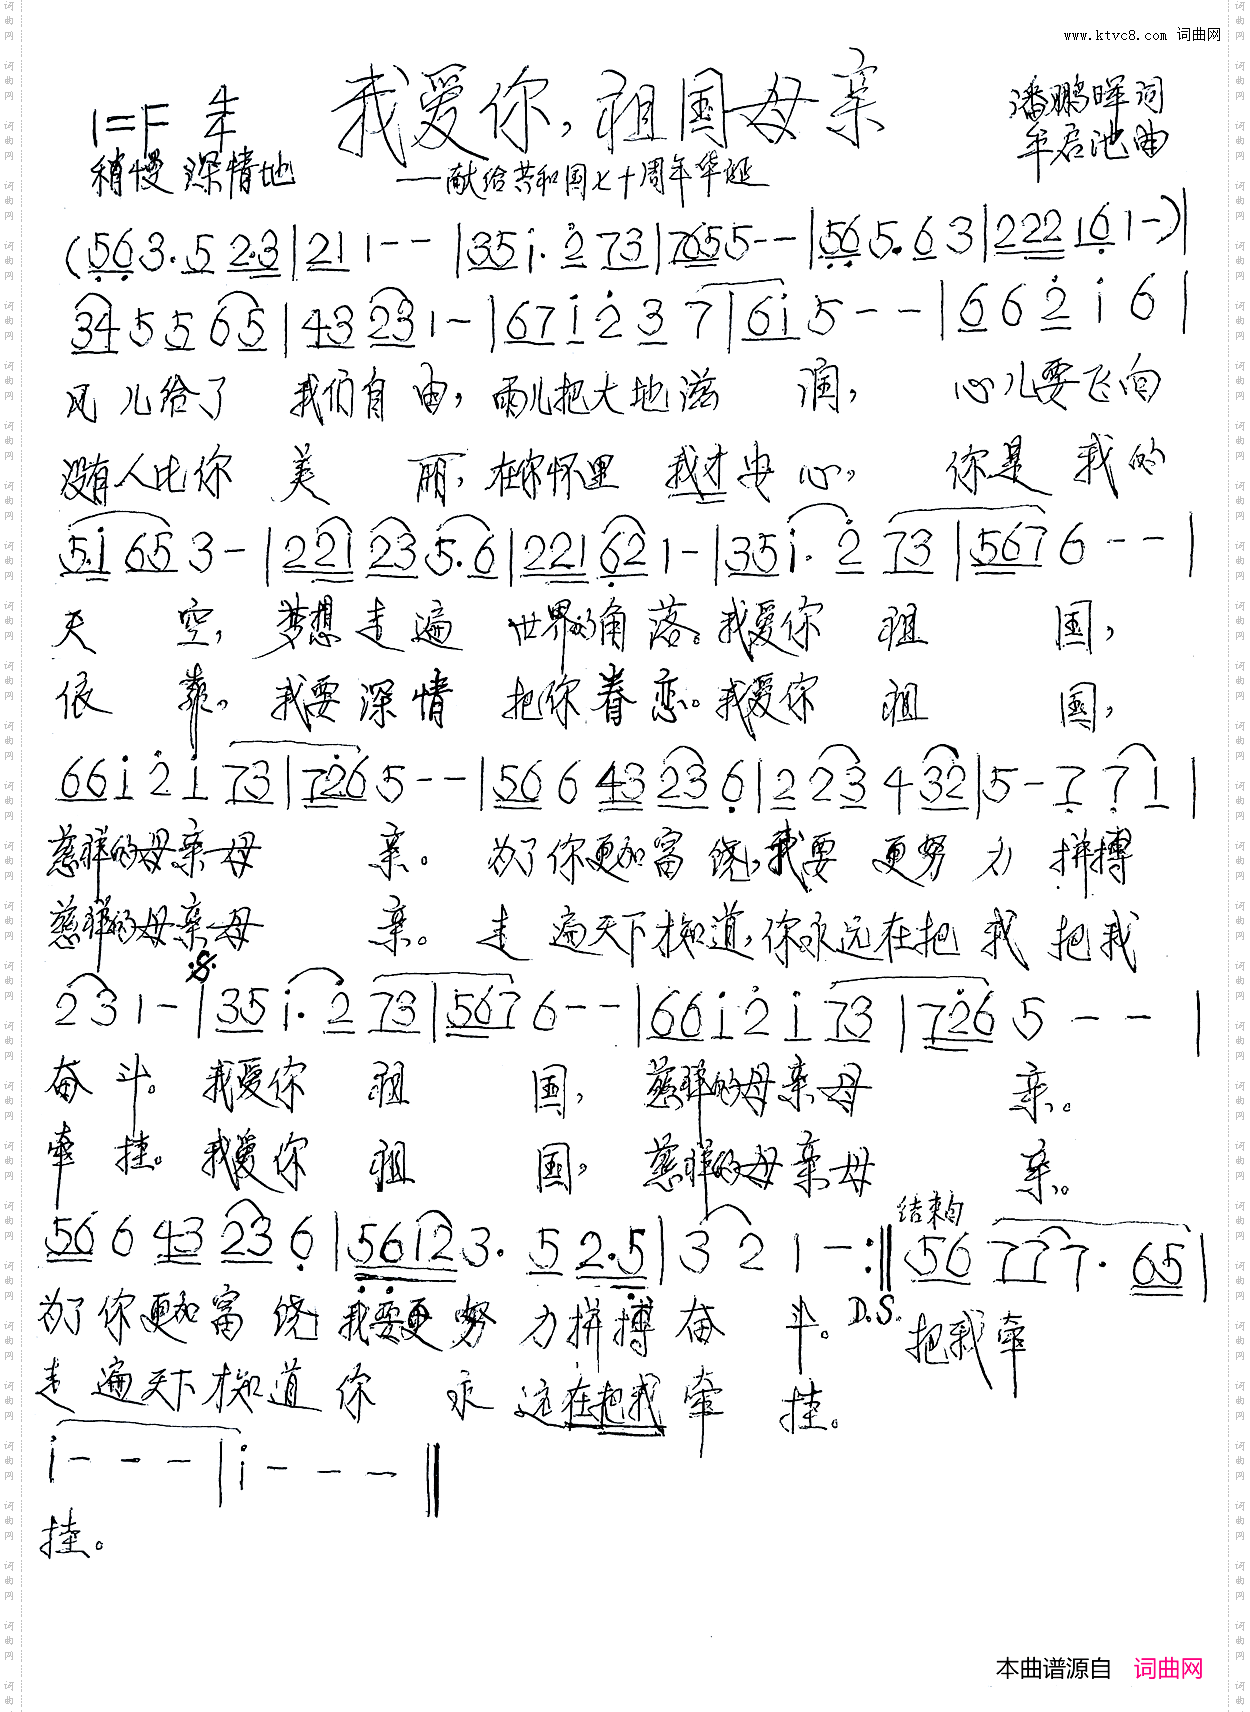 www.ktvc8.com 词曲网
我爱你,祖国母亲
1=F 4/4
潘鹏晖词
稍慢 深情地
——献给共和国七十周年华诞
牟启池曲
(563.5 2.3|211--|35i.2 73|7655--|565.63|222161-)|
345565|43231-|67i237|6i5--|662i6|
风儿给了 我们自由,雨儿把大地滋 润, 心儿要飞向
没有人比你 美 丽,在你怀里 我才安心, 你是 我的
5.i653-|221235.6|221621-|35i.2 73|5676--|
天 空,梦想走遍 世界的角落。我爱你 祖 国,
依 靠。我要深情 把你眷恋。我爱你 祖 国,
66i2i73|7265--|56643236|223432|5-771|
慈祥的母亲母 亲。 为了你更加富饶,我要 更努力 拼搏
慈祥的母亲母 亲。 走遍天下才知道,你永远在把我 把我
231-|35i.2 73|5676--|66i2i73|7265--|
奋斗。我爱你 祖 国, 慈祥的母亲母 亲。
牵挂。我爱你 祖 国, 慈祥的母亲母 亲。
56643236|56123.52.5|321-:|| 结束句 56777.65|
为了你更加富饶 我要更努 力拼搏奋 斗。 D.S. 把我牵
走遍天下才知道 你 永 远在把我牵 挂。
i---|i---||
挂。
本曲谱源自 词曲网